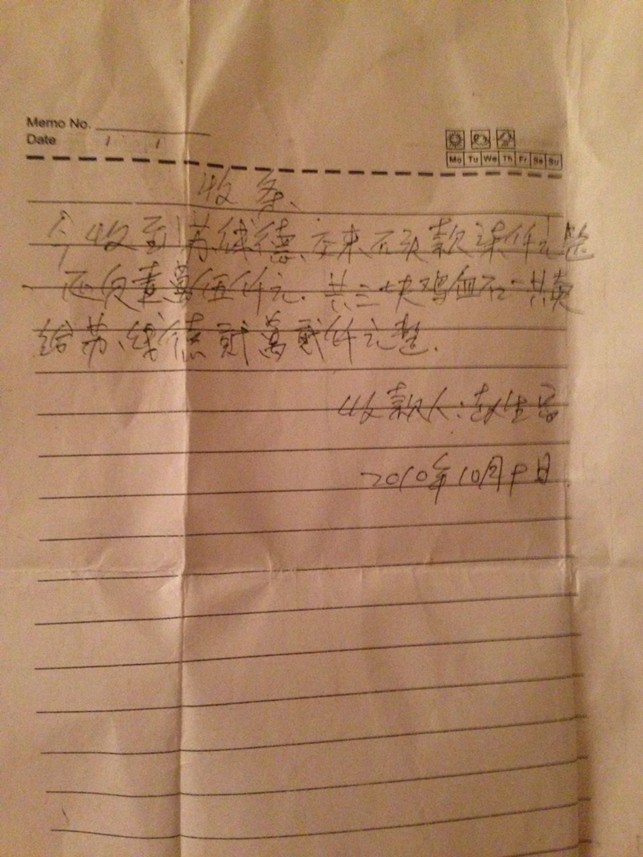 Memo No.
Date / /
Mo Tu We Th Fr Sa Su
收条
今收到苏线德 石款 仟元整
还欠壹萬伍仟元. 共三块鸡血石 共卖
给苏线德贰萬贰仟元整.
收款人: 赵生
2010年10月 日